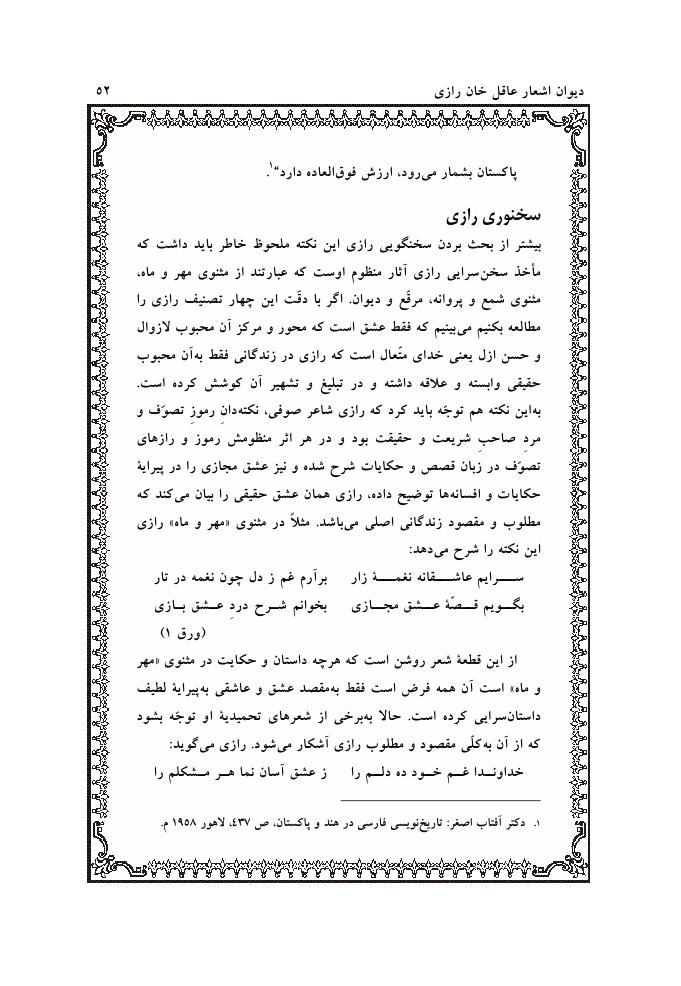 دیوان اشعار عاقل خان رازی ۵۲
پاکستان بشمار می‌رود، ارزش فوق‌العاده دارد“۱.
سخنوری رازی
بیشتر از بحث بردن سخنگویی رازی این نکته ملحوظ خاطر باید داشت که
مأخذ سخن‌سرایی رازی آثار منظوم اوست که عبارتند از مثنوی مهر و ماه،
مثنوی شمع و پروانه، مرقّع و دیوان. اگر با دقّت این چهار تصنیف رازی را
مطالعه بکنیم می‌بینیم که فقط عشق است که محور و مرکز آن محبوب لازوال
و حسن ازل یعنی خدای متّعال است که رازی در زندگانی فقط به‌آن محبوب
حقیقی وابسته و علاقه داشته و در تبلیغ و تشهیر آن کوشش کرده است.
به‌این نکته هم توجّه باید کرد که رازی شاعر صوفی، نکته‌دانِ رموزِ تصوّف و
مردِ صاحبِ شریعت و حقیقت بود و در هر اثر منظومش رموز و رازهای
تصوّف در زبان قصص و حکایات شرح شده و نیز عشق مجازی را در پیرایۀ
حکایات و افسانه‌ها توضیح داده، رازی همان عشق حقیقی را بیان می‌کند که
مطلوب و مقصود زندگانی اصلی می‌باشد. مثلاً در مثنوی «مهر و ماه» رازی
این نکته را شرح می‌دهد:
سـرایم عاشـقانه نغمـۀ زار برآرم غم ز دل چون نغمه در تار
بگـویم قـصّۀ عـشق مجـازی بخوانم شـرح دردِ عـشق بـازی
(ورق ۱)
از این قطعۀ شعر روشن است که هرچه داستان و حکایت در مثنوی «مهر
و ماه» است آن همه فرض است فقط به‌مقصد عشق و عاشقی به‌پیرایۀ لطیف
داستان‌سرایی کرده است. حالا به‌برخی از شعرهای تحمیدیۀ او توجّه بشود
که از آن به‌کلّی مقصود و مطلوب رازی آشکار می‌شود. رازی می‌گوید:
خداونـدا غـم خـود ده دلـم را ز عشق آسان نما هـر مـشکلم را
۱. دکتر آفتاب اصغر: تاریخ‌نویسی فارسی در هند و پاکستان، ص ۴۳۷، لاهور ۱۹۵۸ م.